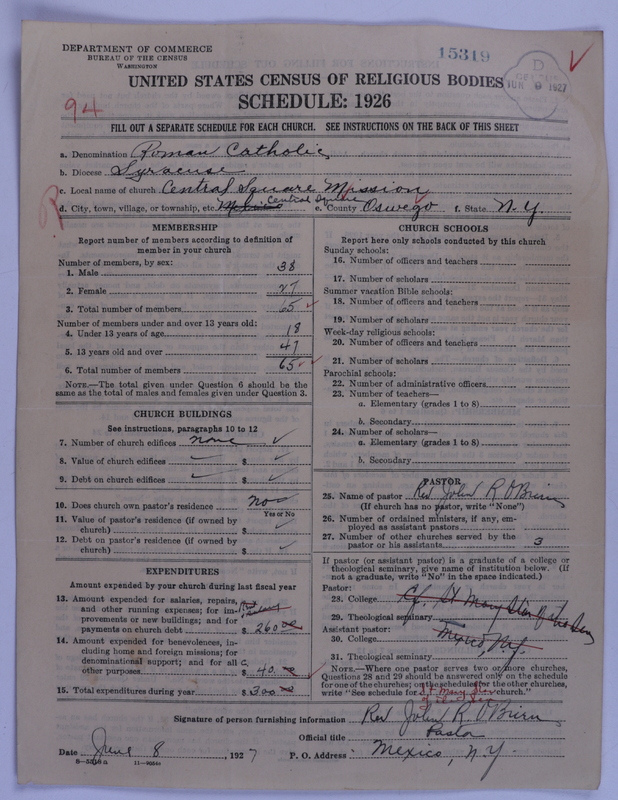 DEPARTMENT OF COMMERCE
BUREAU OF THE CENSUS
WASHINGTON
15319
D
JUN 9 1927
94
UNITED STATES CENSUS OF RELIGIOUS BODIES
SCHEDULE: 1926
FILL OUT A SEPARATE SCHEDULE FOR EACH CHURCH. SEE INSTRUCTIONS ON THE BACK OF THIS SHEET
a. Denomination Roman Catholic
b. Diocese Syracuse
c. Local name of church Central Square Mission
d. City, town, village, or township, etc. Mexico Central Square e. County Oswego f. State N.Y.
MEMBERSHIP
Report number of members according to definition of
member in your church
Number of members, by sex:
1. Male 38
2. Female 27
3. Total number of members 65
Number of members under and over 13 years old:
4. Under 13 years of age 18
5. 13 years old and over 47
6. Total number of members 65
NOTE.—The total given under Question 6 should be the
same as the total of males and females given under Question 3.
CHURCH BUILDINGS
See instructions, paragraphs 10 to 12
7. Number of church edifices none
8. Value of church edifices $
9. Debt on church edifices $
10. Does church own pastor's residence no
Yes or No
11. Value of pastor's residence (if owned by
church) $
12. Debt on pastor's residence (if owned by
church) $
EXPENDITURES
Amount expended by your church during last fiscal year
13. Amount expended for salaries, repairs,
and other running expenses; for im-
provements or new buildings; and for
payments on church debt $ 260 00
14. Amount expended for benevolences, in-
cluding home and foreign missions; for
denominational support; and for all
other purposes $ 40 00
15. Total expenditures during year $ 300 00
CHURCH SCHOOLS
Report here only schools conducted by this church
Sunday schools:
16. Number of officers and teachers
17. Number of scholars
Summer vacation Bible schools:
18. Number of officers and teachers
19. Number of scholars
Week-day religious schools:
20. Number of officers and teachers
21. Number of scholars
Parochial schools:
22. Number of administrative officers
23. Number of teachers—
a. Elementary (grades 1 to 8)
b. Secondary
24. Number of scholars—
a. Elementary (grades 1 to 8)
b. Secondary
PASTOR
25. Name of pastor Rev John R. O'Brien
(If church has no pastor, write "None")
26. Number of ordained ministers, if any, em-
ployed as assistant pastors
27. Number of other churches served by the
pastor or his assistants 3
If pastor (or assistant pastor) is a graduate of a college or
theological seminary, give name of institution below. (If
not a graduate, write "No" in the space indicated.)
Pastor:
28. College Cf. St Mary Star of the Sea
29. Theological seminary
Assistant pastor: Mexico, N.Y.
30. College
31. Theological seminary
NOTE.—Where one pastor serves two or more churches,
Questions 28 and 29 should be answered only on the schedule
for one of the churches; on the schedules for the other churches,
write "See schedule for St Mary Star of the Sea church."
Signature of person furnishing information Rev John R. O'Brien
Official title Pastor
Date June 8, 1927 P. O. Address Mexico, N.Y.